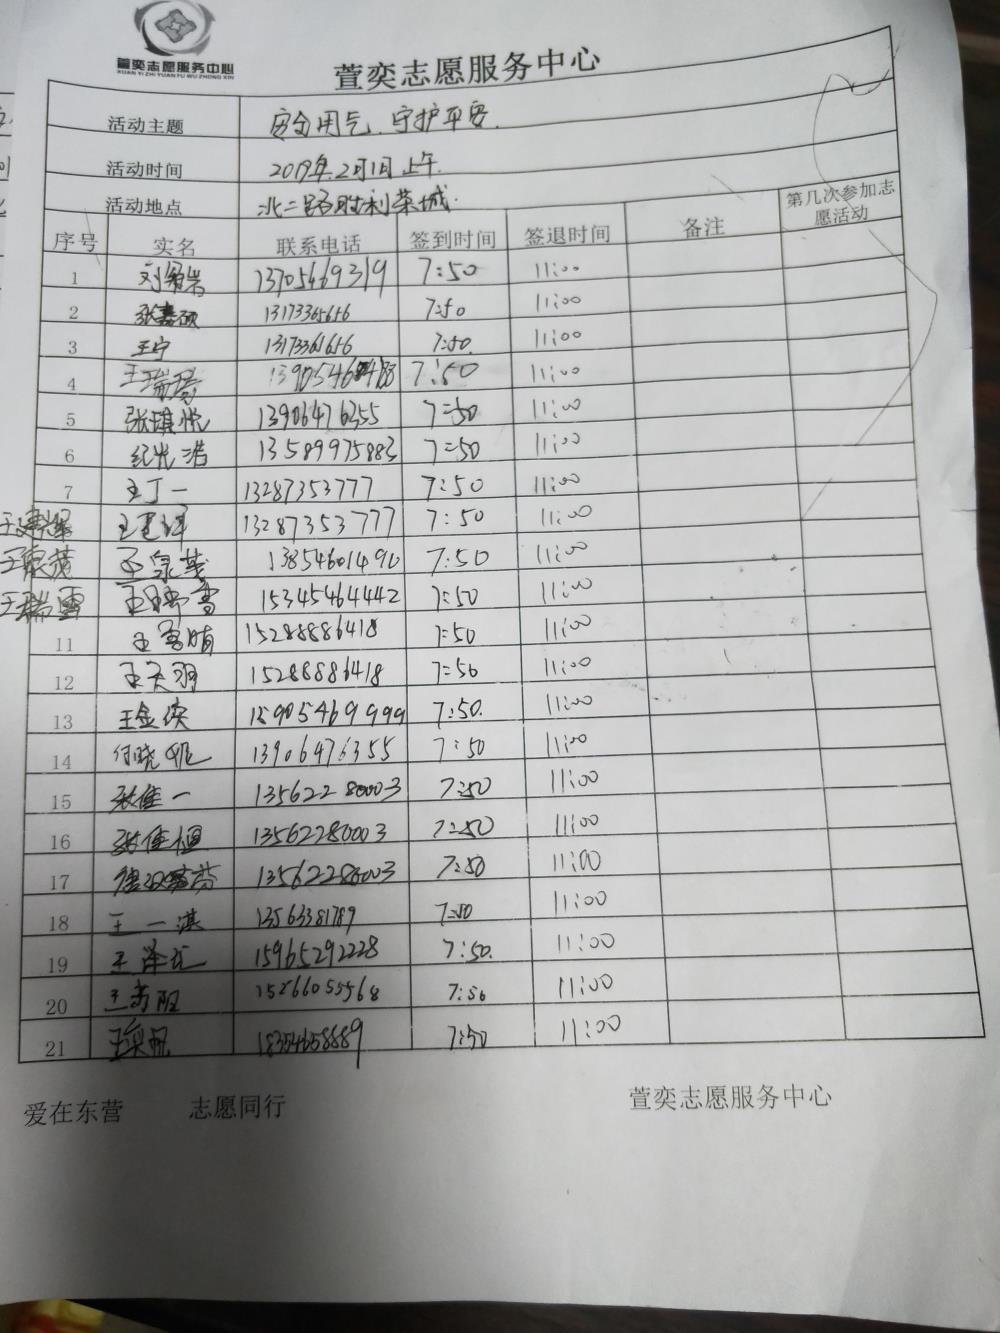 萱奕志愿服务中心
XUAN YI ZHI YUAN FU WU ZHONG XIN
萱奕志愿服务中心
活动主题 安全用气、守护平安.
活动时间 2019年.2月1日上午
活动地点 北二路胜利荣城.
序号 实名 联系电话 签到时间 签退时间 备注 第几次参加志愿活动
1 13705469319 7:50 11:00
2 张嘉硕 13173365656 7:50 11:00
3 王宁 13173361656 7:50. 11:00
4 王瑞 7:50 11:00
5 张琪悦 13906476355 7:50 11:00
6 纪光浩 13589975883 7:50 11:00
7 王丁一 13287353777 7:50 11:00
13287353777 7:50 11:00
13854601490 7:50 11:00
王瑞雪 15345464442 7:50 11:00
11 王雪晴 15288886418 7:50 11:00
12 王天羽 15288886418 7:50 11:00
13 王金 15905469999 7:50. 11:00
14 付晓妮 13906476355 7:50 11:00
15 张佳一 13562280003 7:50 11:00
16 张佳恒 13562280003 7:50 11:00
17 13562280003 7:50 11:00
18 王一淇 13563381789 7:50 11:00
19 王泽 15965292228 7:50. 11:00
20 15266055568 7:50 11:00
21 18354658889 7:50 11:00
爱在东营 志愿同行 萱奕志愿服务中心